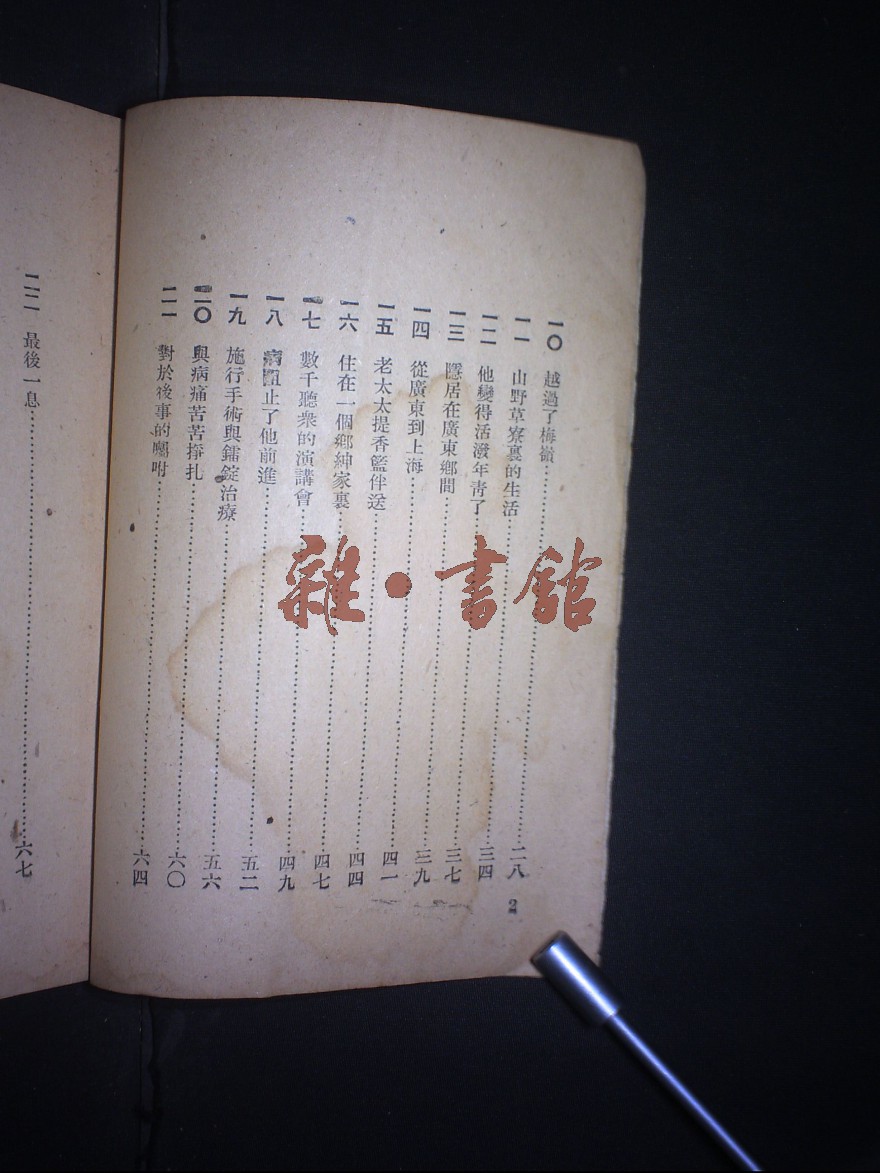 一〇 越過了梅嶺……二八
一一 山野草寮裏的生活……三四
一二 他變得活潑年青了……三七
一三 隱居在廣東鄉間……三九
一四 從廣東到上海……四一
一五 老太太提香籃伴送……四四
一六 住在一個鄉紳家裏……四七
一七 數千聽衆的演講會……四九
一八 病阻止了他前進……五二
一九 施行手術與鐳錠治療……五六
二〇 與病痛苦苦掙扎……六〇
二一 對於後事的囑咐……六四
2
二二 最後一息……六七
雜·書館